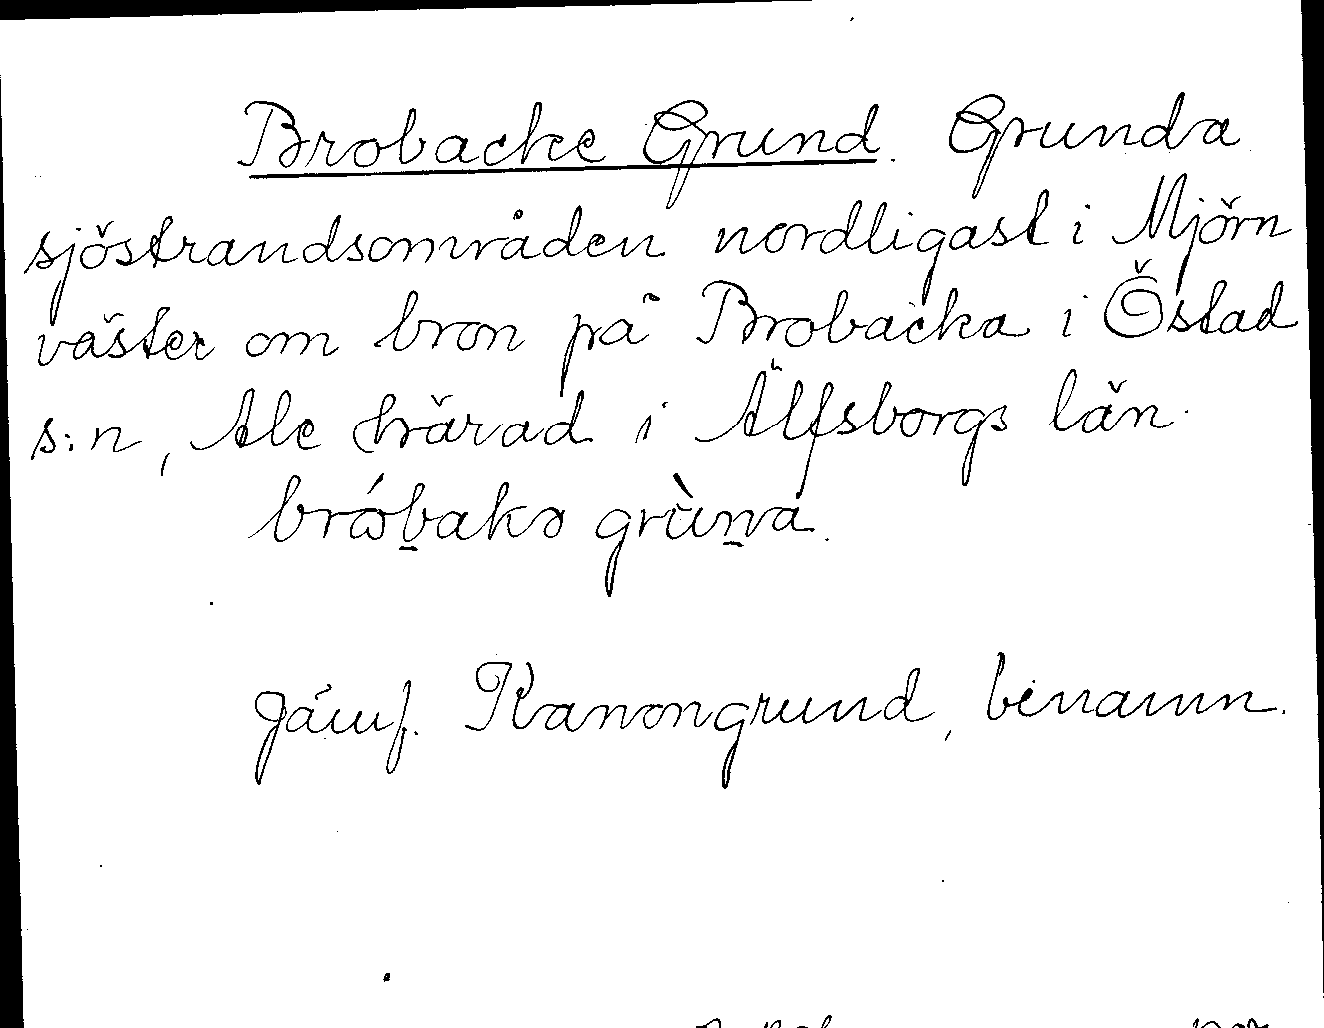 Brobacke Grund. Grunda
sjöstrandsområden nordligast i Mjörn
väster om bron på Brobacka i Östad
s:n, Ale härad i Älfsborgs län.
brɷ́bakə grùna.
Jämf. Kanongrund, binamn.